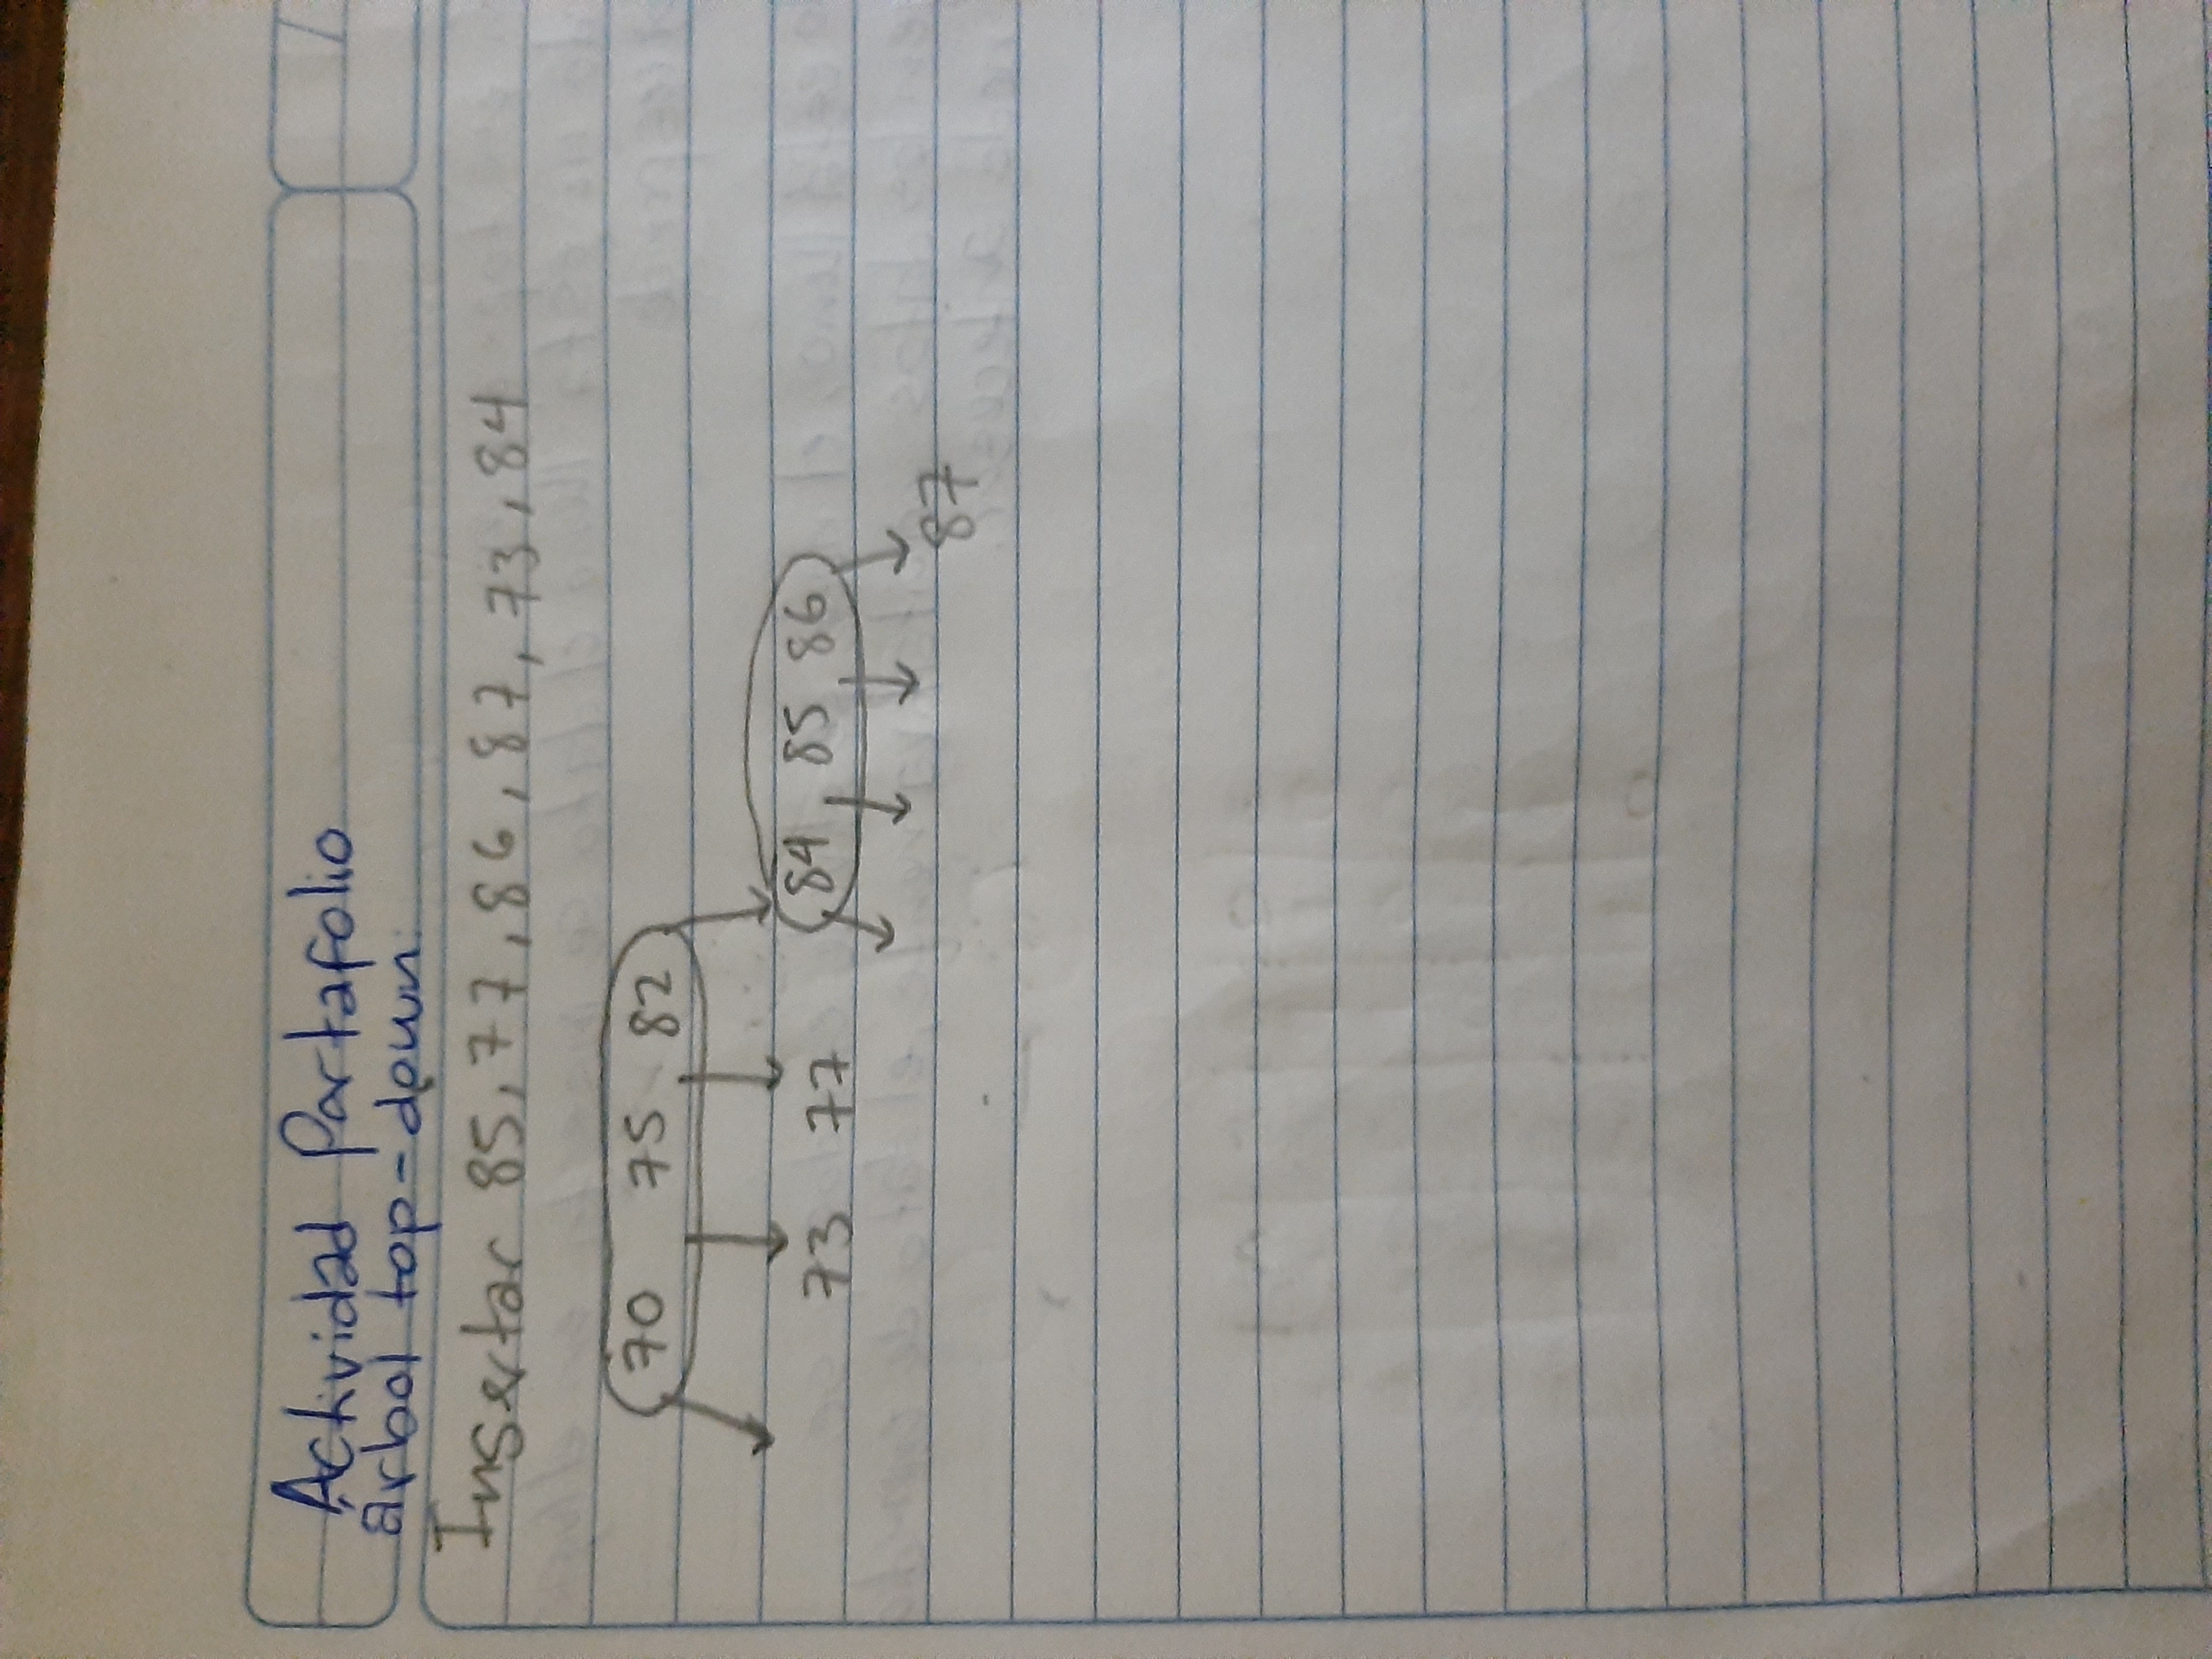 Actividad Portafolio
árbol top-down.
Insertar 85, 77, 86, 87, 73, 84
70 75 82
84 85 86
73 77
87